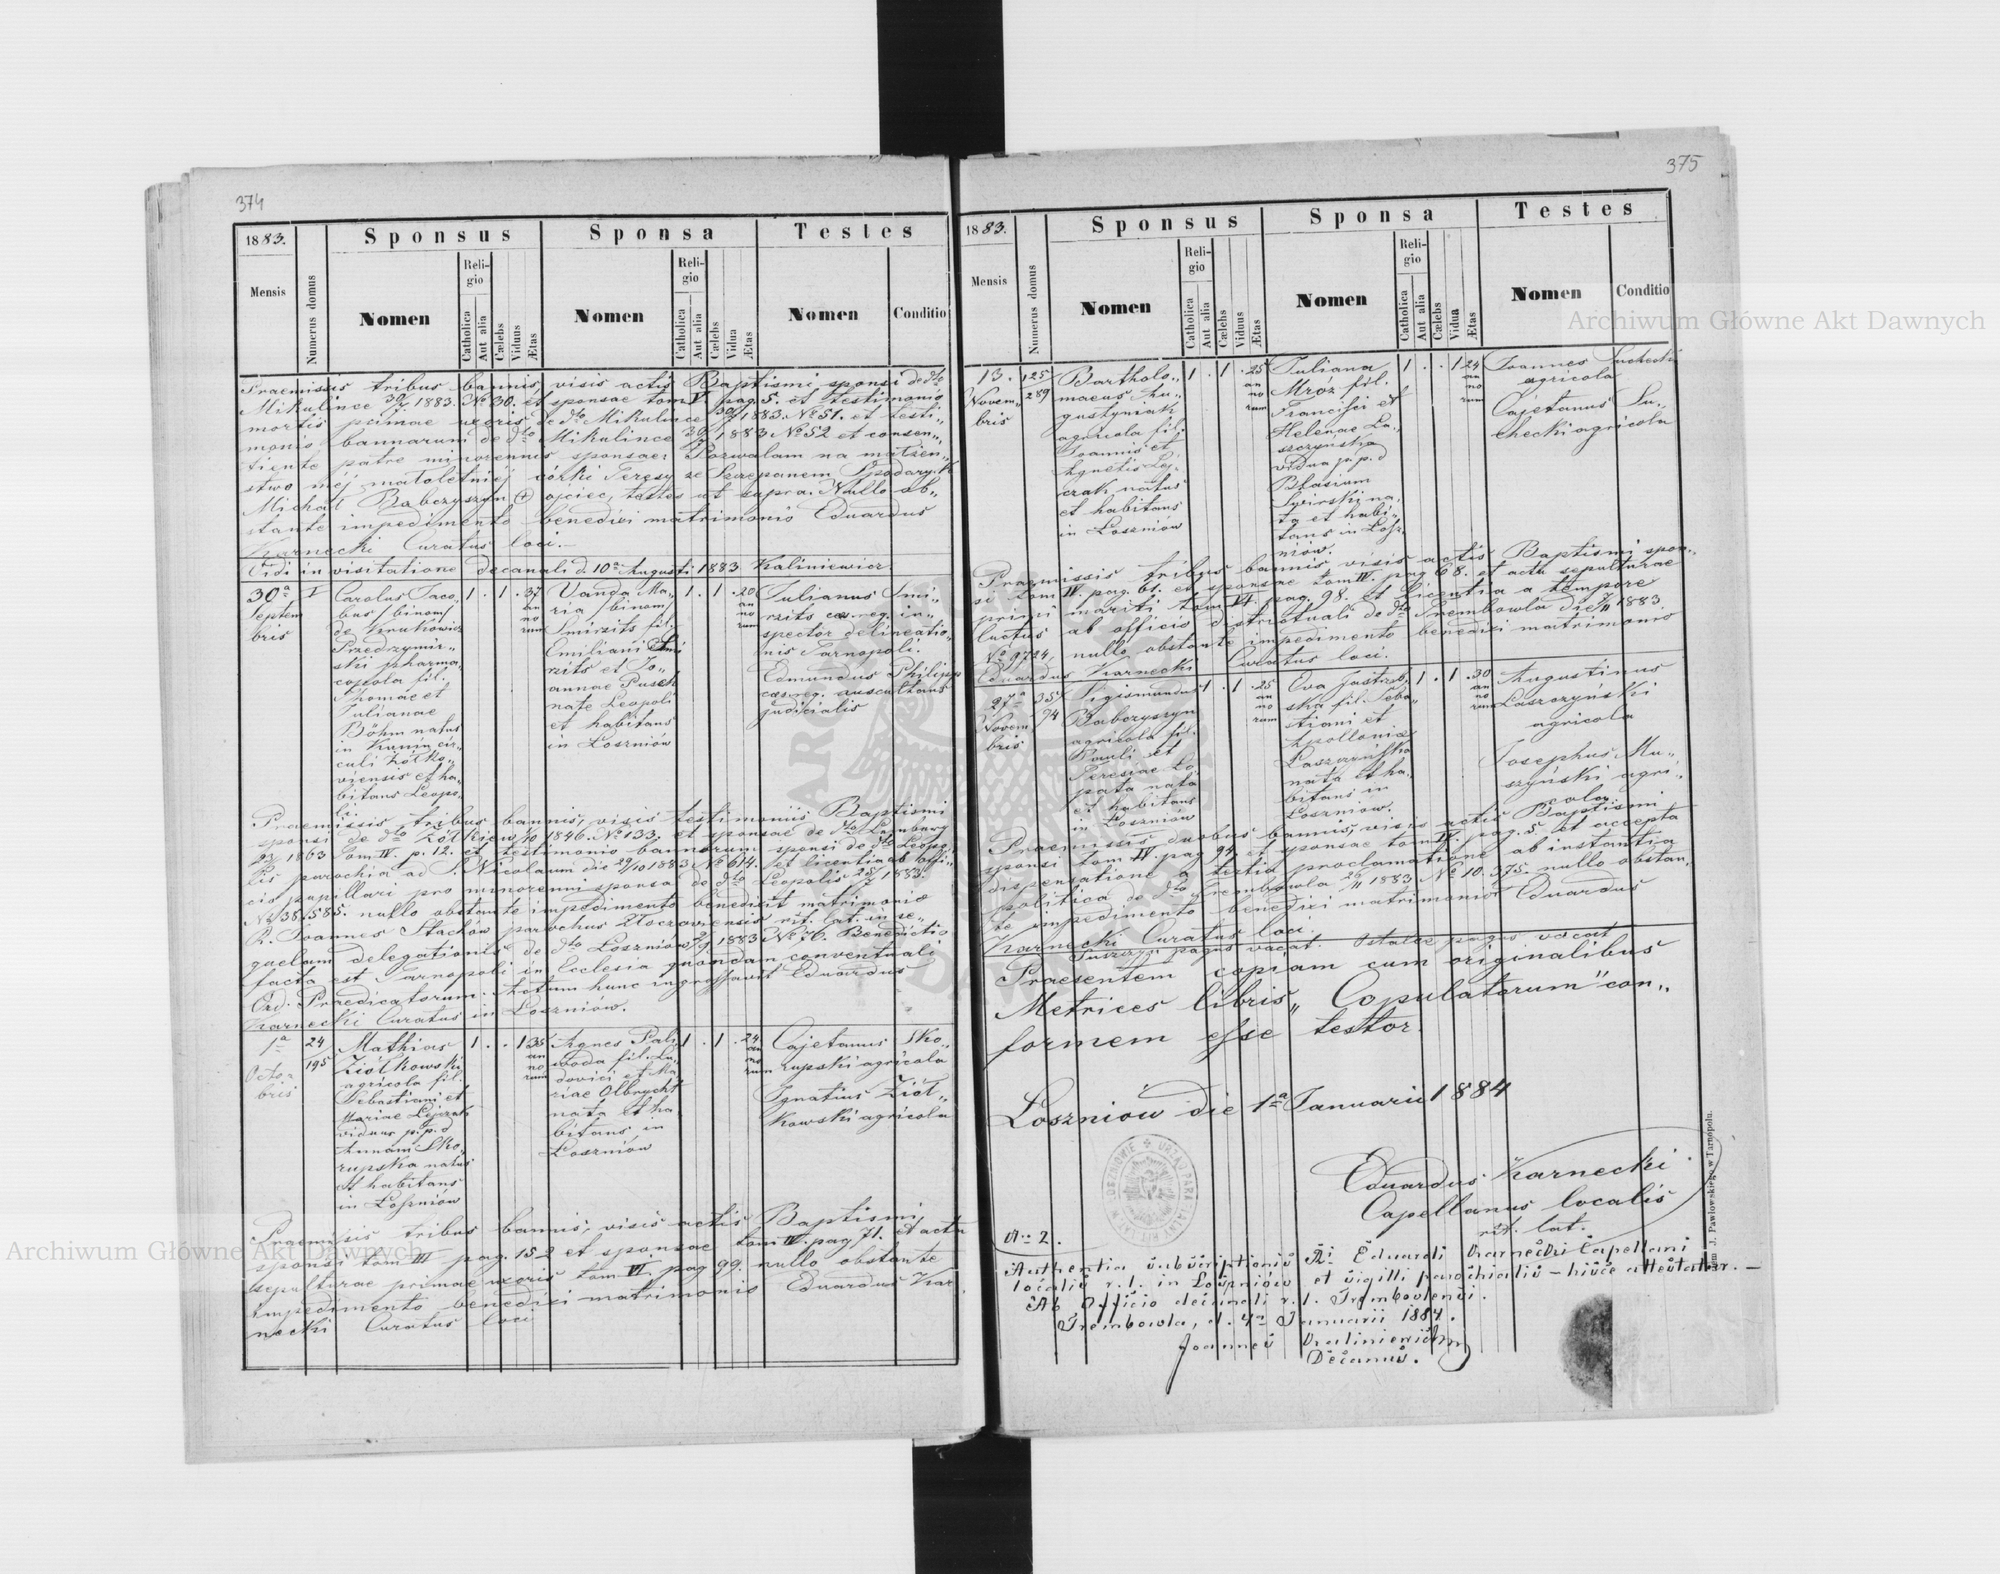 374
1883.
Sponsus
Sponsa
Testes
Mensis
Numerus domus
Nomen
Religio
Catholica
Aut alia
Cælebs
Viduus
Ætas
Nomen
Religio
Catholica
Aut alia
Cælebs
Vidua
Ætas
Nomen
Conditio
Praemissis tribus bannis, visis actis Baptismi sponsi de dto
Mikulince 1883. No 30. et sponsae tom V. pag. 5. et testimonio
mortis primae uxoris de dto Mikulince 1883. No 51. et testi-
monio bannorum de dto Mikulince 1883 No 52 et consen-
tiente patre minorennis sponsae: Pozwalam na małżen-
stwo mej małoletniej córki Teresy ze Szczepanem
Michał Babczyszyn + ojciec, testes ut supra. Nullo ob-
stante impedimento benedixi matrimonio Eduardus
Karnecki Curatus loci.
Vidi in visitatione decanali d. 10a Augusti 1883 Kaliniewicz.
30a
Septem
bris
I
Carolus Jaco-
bus /binom/
de Krukowicz
Przedrzymir-
ski pharma-
copola fil.
Thomae et
Julianae
Böhm natus
in Kunin cir-
culi Żółko-
viensis et ha-
bitans Leopo-
li
1 . 1 . 37
an
no
rum
Vanda Ma-
ria /binom/
Smirzits fil.
Emiliani Smi
rzits et Jo-
annae Pusch
nata Leopoli
et habitans
in Łoszniów
1 . 1 . 20
an
no
rum
Julianus Smi-
rzits caes. reg. in-
spector delineatio-
nis Tarnopoli.
Edmundus Philipp
caes. reg. auscultans
judicialis
Praemissis tribus bannis, visis testimoniis Baptismi
sponsi de dto Żółkiew 1846. No 133. et sponsae de dto Lemberg
1863 Tom IV. p. 12. et testimonio bannorum sponsi de dto Leopo-
lis parochia ad S. Nicolaum die 29/10 1883 No 614. et licentia ab offi-
cio pupillari pro minorenni sponsa de dto Leopolis 1883.
No 38.585. nullo obstante impedimento benedixit matrimonio
R. Joannes Stachów parochus Złoczoviensis rit. lat. in se-
quelam delegationis de dto Łoszniów 1883 No 76. Benedictio
facta est Tarnopoli in Ecclesia quondam conventuali
Ord. Praedicatorum. Actum hunc ingrossavit Eduardus
Karnecki Curatus in Łoszniów.
1a
Octo-
bris
24
195
Mathias
Ziółkowski
agricola fil.
Sebastiani et
Mariae Lejczak
viduus p. p. d
Annam Sko-
rupska natus
et habitans
in Łoszniów
1 . . 1 35
an
no
rum
Agnes Pali
woda fil. Lu-
dovici et Ma-
riae Olbrycht
nata et ha-
bitans in
Łoszniów
1 . 1 . 24
an
no
rum
Cajetanus Sko-
rupski agricola
Ignatius Ziół-
kowski agricola
Praemissis tribus bannis, visis actis Baptismi
sponsi tom III pag. 152 et sponsae tom IV. pag 71. et actu
sepulturae primae uxoris tom VI. pag 99. nullo obstante
impedimento benedixi matrimonio Eduardus Kar
necki Curatus loci
375
1883.
Sponsus
Sponsa
Testes
Mensis
Numerus domus
Nomen
Religio
Catholica
Aut alia
Cælebs
Viduus
Ætas
Nomen
Religio
Catholica
Aut alia
Cælebs
Vidua
Ætas
Nomen
Conditio
13.
Novem-
bris
125
289
Bartholo-
maeus Au-
gustyniak
agricola fil.
Joannis et
Agnetis Lej-
czak natus
et habitans
in Łoszniów
1 . 1 . 25
an
no
rum
Juliana
Mróz fil.
Francisci et
Helenae La-
szczyńska
vidua p. p. d
Blasium
Swirski na-
ta et habi-
tans in Łosz-
niów.
1 . . 1 24
an
no
rum
Joannes Suchecki
agricola
Cajetanus Su-
checki agricola
Praemissis tribus bannis, visis actis Baptismi spon-
si tom IV. pag. 61. et sponsae tom IV. pag 68. et actu sepulturae
primi mariti tom VI. pag. 98. et licentia a tempore
luctus ab officio districtuali de dto Trembowla die 1883.
No 9724, nullo obstante impedimento benedixi matrimonio
Eduardus Karnecki Curatus loci.
27a
Novem
bris
35
94
Sigismundus
Babczyszyn
agricola fil.
Pauli et
Teresiae Ło
pata natus
et habitans
in Łoszniów
1 . 1 . 25
an
no
rum
Eva Jastrzęb-
ska fil. Seba-
stiani et
Apolloniae
Laszczyńska
nata et ha-
bitans in
Łoszniów.
1 . 1 . 30
an
no
rum
Augustinus
Laszczyński
agricola
Josephus Mu-
szyński agri-
cola.
Praemissis duobus bannis, visis actis Baptismi
sponsi tom IV. pag 94, et sponsae tom IV. pag. 5. et accepta
dispensatione a tertia proclamatione ab instantia
politica de dto Trembowla 26/11 1883 No 10.375. nullo obstan-
te impedimento benedixi matrimonio Eduardus
Karnecki Curatus loci.
pagus vacat. Ostalce pagus vacat
Praesentem copiam cum originalibus
Metrices libris „Copulatorum" con-
formem esse testor.
Łoszniow die 1a Januarii 1884
Eduardus Karnecki
Capellanus localis
rit. lat.
No 2.
Authentia subscriptionis Rdi Eduardi Karnecki Capellani
localis r. l. in Łoszniów et sigilli parochialis hisce attestatur. —
Ab Officio decanali r. l. Trembovlensi.
Trembowla, d. 4a Januarii 1884.
Joannes Kaliniewicz
Decanus.
J. Pawłowskiego w Tarnopolu.
Archiwum Główne Akt Dawnych
Archiwum Główne Akt Dawnych